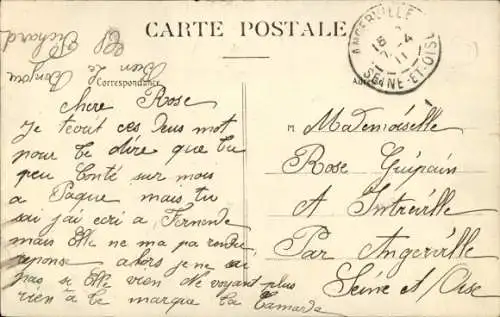 CARTE POSTALE
Correspondance
Bonjour
Bien le
Richard
ANGERVILLE
16
4
11
SEINE-ET-OISE
chère Rose
Je tecrit ces deus mot
pour te dire que tu
peu Conté sur mois
a Paque mais tu
sai j'ai ecri a Fernande
mais Elle ne ma pa rendu
reponse alors je ne sai
pas si Elle vien Ne voyant plus
rien à te marque ta Camarde
M Mademoiselle
Rose Guipain
A Intréville
Par Angerville
Seine et Oise